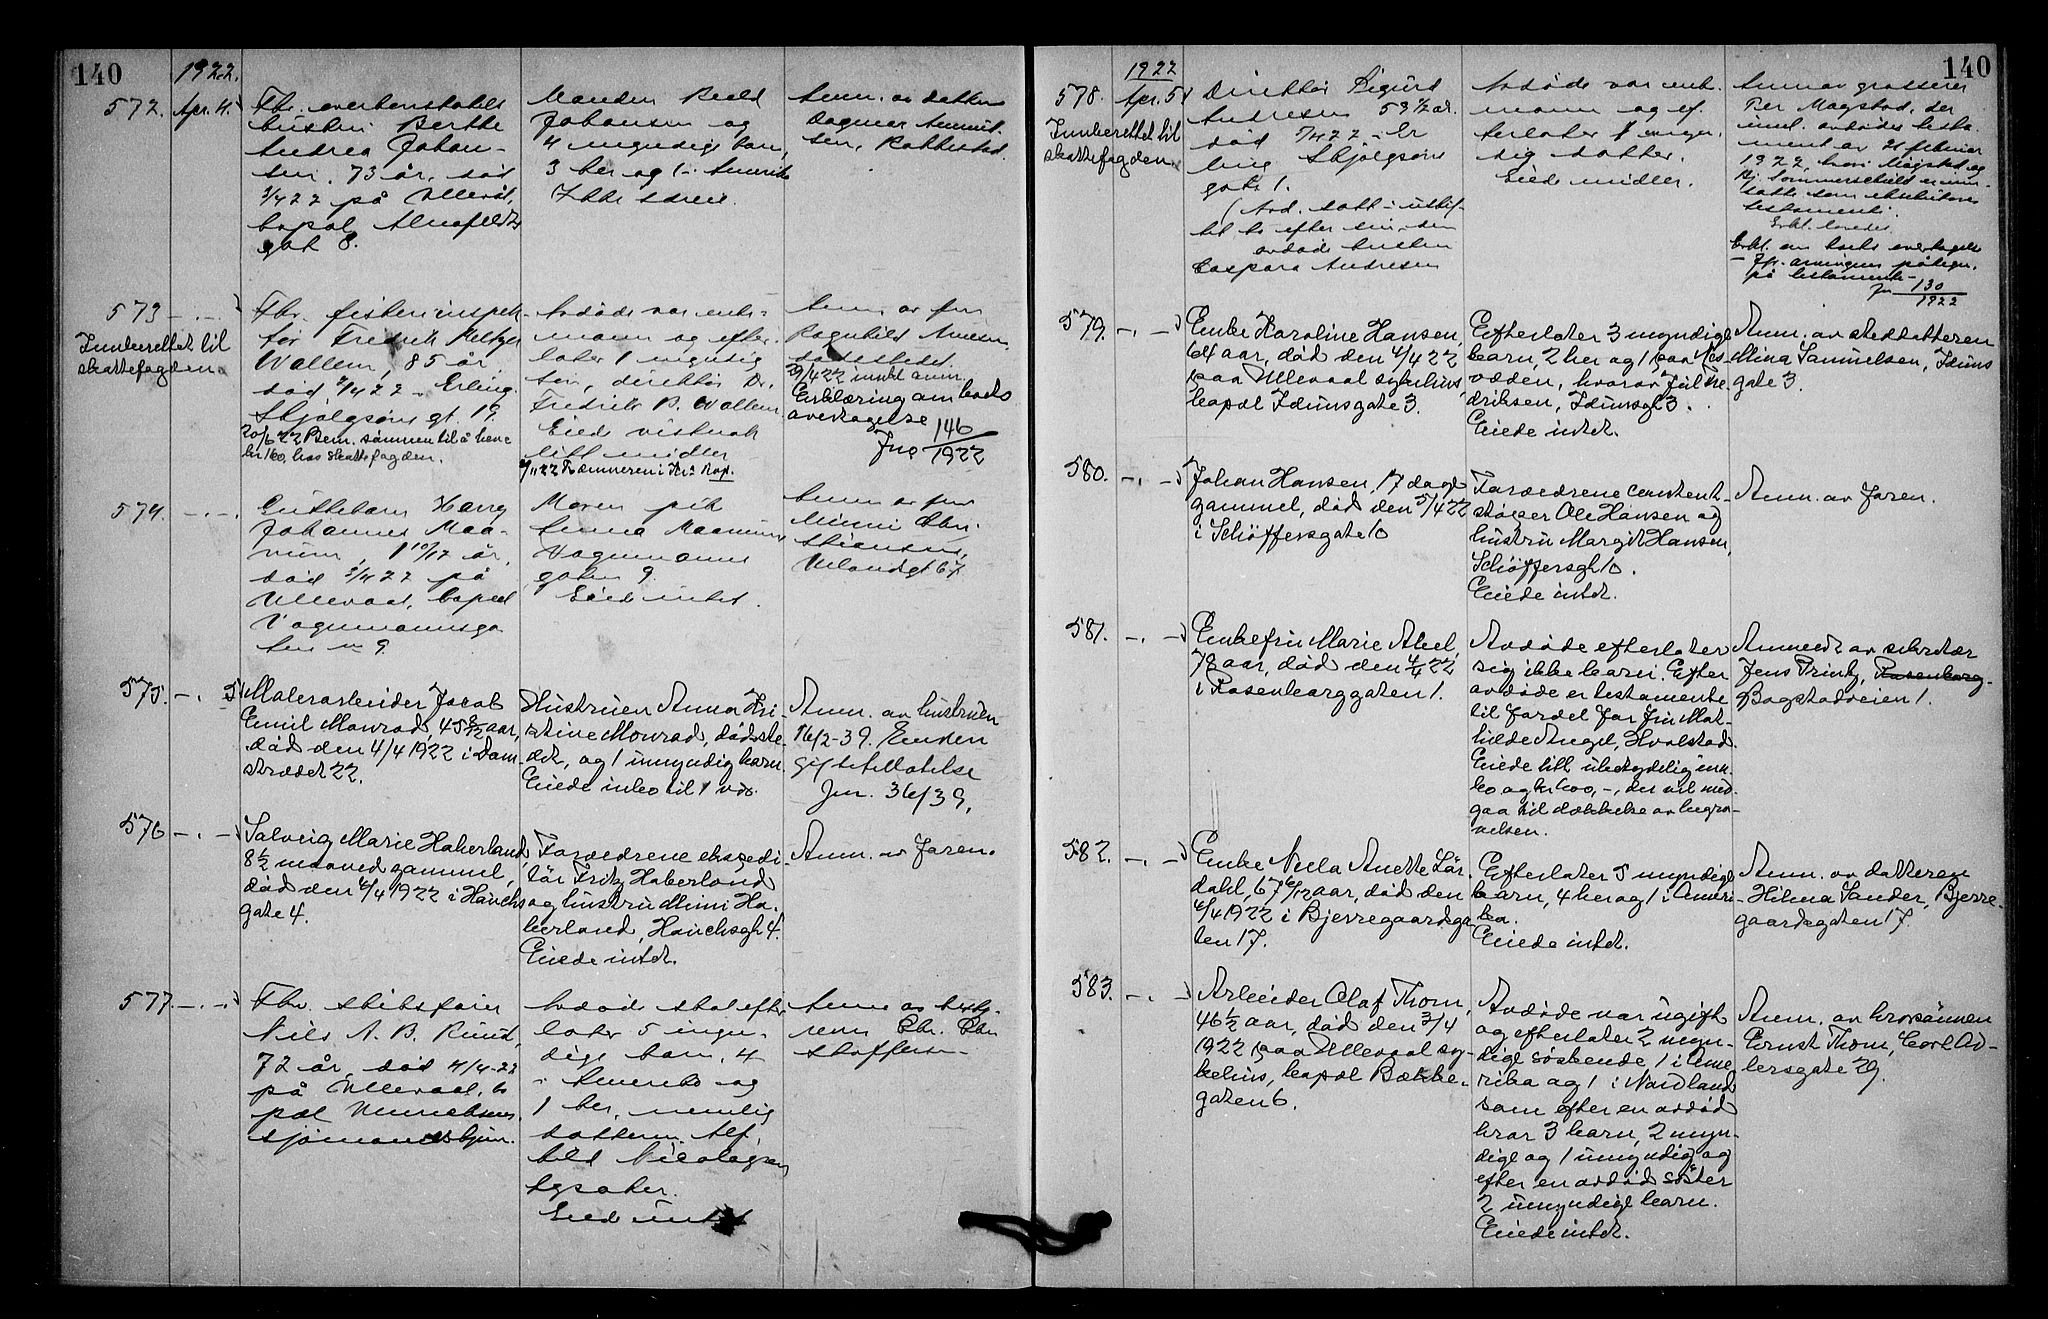 140
1922.
572. Apr. 4.
Fhv. overkonstabels
hustru Berthe
Andrea Johan-
sen, 73 år, død
3/4 22 på Ullevål,
bopæl
gate 8.
Manden
Johansen og
4 myndige barn,
3 her og 1 i Amerika
Ikke særeie.
Anm. av datter
Dagmar
sen, Rakkestad.
573 -.-
Innberettet til
skattefogden.
Fhv. fiskeriinspek-
tør Fredrik Meltzer
Wallem, 85 år,
død 2/4 22 Erling
Skjalgsøns gt. 19.
20/6 22 Bem. sønnen til å heve
kr 160, hos skattefogden.
Avdøde var enke-
mann og efter-
later 1 myndig
søn, direktør Dr.
Fredrik B. Wallem
Eied vistnok
litt midler
Anm. av frk
Ragnhild
dødsstedet.
29/4 22 innkl anm.
Erklæring om boets
overtagelse
Jnr 146/1922
574. -.-
Guttebarn Harry
Johannes Maa-
num, 1 10/12 år,
død 3/4 22 på
Ullevaal, bopæl
Vognmannsga-
ten nr 9.
Moren pik
Anna Maanum
Vognmanns
gaten 9.
Eied intet.
Anm av fru
Minni Chri-
stiansen,
Uelandsgt 67
575. -.- 5/
Malerarbeider Jacob
Emil Monrad, 45 8/12 aar,
død den 4/4 1922 i Dam-
strædet 22.
Hustruen Anna Kri-
stine Monrad, dødsste-
det, og 1 umyndig barn
Eiede inbo til 1 vær.
Anm. av hustruen
16/2-39. Enken
giftetillatelse
Jnr. 36/39,
576 -.-
Solveig Marie Haberland
8 1/2 maaned gammel,
død den 4/4 1922 i Hauchs
gate 4.
Forældrene ekspedi-
tør Fritz Haberland
og hustru Mimi Ha-
berland, Hauchsgt 4.
Eiede intet.
Anm. av faren.
577. -.-
Fhv. skibsfører
Niels A. B. Ruud,
72 år, død 4/4-22
på Ullevaal, bo
pæl
sjømandshjem.
Avdøde skal efter
later 5 myn-
dige barn, 4
i Amerika og
1 her, nemlig
datteren Alf-
hild Nicolaysen
Eied intet
Anm av
Chr. Chri
stoffersen
140
1922
578. Apr. 5/
Innberettet til
skattefogden
Direktør Sigurd
Andresen 53 1/2 år.
død 5/4 22 i Er
ling Skjalgsøns
gate 1.
(Avd. satt i uskif-
tet bo efter sin, den
avdøde hustru
Caspara Andresen
Avdøde var enke-
mann og ef-
terlater 1 myn-
dig datter.
Eied midler.
Anm av grosserer
Per Mogstad, der
inml. avdødes testa-
ment av 21 februar
1922, hvori Mogstad og
Hj. Sommerschield er inn-
satt som eksekutorer
testamenti.
Erkl. lovedes.
Erkl. om boets overtagelse
- Jfr. arvingens påtegn.
på testamente -
Jnr 130/1922
579. -.-
Enke Karoline Hansen,
64 aar, død den 4/4 22
paa Ullevaal sykehus,
bopæl Idunsgate 3.
Efterlater 3 myndige
barn, 2 her og 1 paa Nes-
odden, hvorav Jul Fre-
driksen, Idunsgt 3.
Eiede intet.
Anm. av steddatteren
Mina Samuelsen, Iduns
gate 3.
580. -.-
Johan Hansen, 17 dage
gammel, død den 5/4 22
i Schøffersgate 10
Forældrene cement-
støper Ole Hansen og
hustru Margit Hansen,
Schøffersgt 10.
Eiede intet.
Anm. av faren.
581. -.-
Enkefru Marie Abel,
78 aar, død den 4/4 22
i Rosenborggaten 1.
Avdøde efterlater
sig ikke barn. Efter
avdøde er testamente
til fordel for fru Mat-
hilde Angel, Hvalstad.
Eiede litt ubetydelig inn-
bo og kr 600,-, der vil med-
gaa til dækkelse av begra-
velsen.
Anmeldt av sekretær
Jens Printz, Rosenborg-
Bogstadveien 1.
582. -.-
Enke Nella Anette Lár-
dahl, 67 6/12 aar, død den
4/4 1922 i Bjerregaardsga
ten 17.
Efterlater 5 myndige
barn, 4 her og 1 i Ameri-
ka.
Eiede intet.
Anm. av datteren
Hilma Sander, Bjerre-
gaardsgaten 17.
583. -.-
Arbeider Olaf Thorn,
46 1/2 aar, død den 3/4
1922 paa Ullevaal sy-
kehus, bopæl Bakke-
gaten 6.
Avdøde var ugift
og efterlater 2 myn-
dige søskende, 1 i Ame
rika og 1 i Nordland
samt efter en avdød
bror 3 barn, 2 myn-
dige og 1 umyndig og
efter en avdød søster
2 umyndige barn.
Eiede intet.
Anm. av brorsønnen
Ernst Thorn, Carl Ad-
lersgate 29.